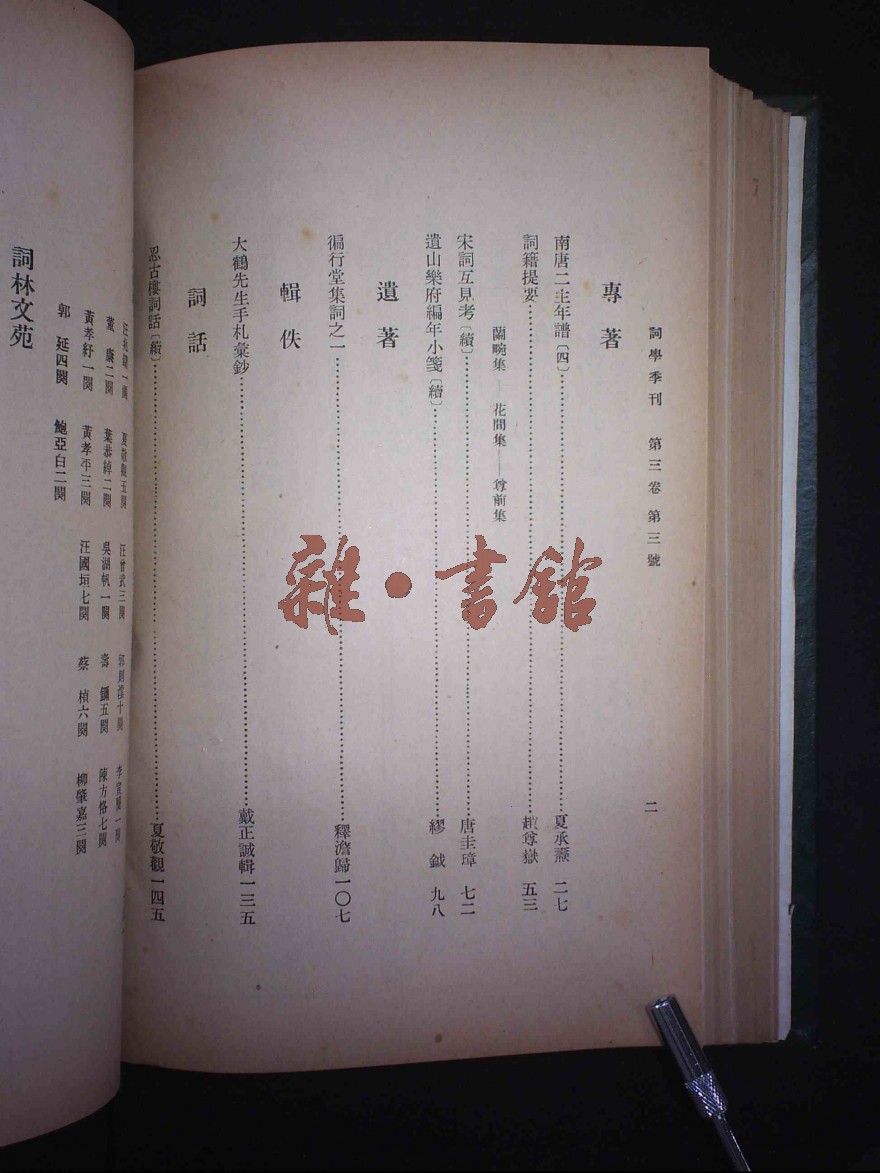 詞學季刊　第三卷第三號
二
專著
南唐二主年譜〔四〕……夏承燾　二七
詞籍提要……趙尊嶽　五三
蘭畹集——花間集——尊前集
宋詞互見考〔續〕……唐圭璋　七二
遺山樂府編年小箋〔續〕……繆鉞　九八
遺著
徧行堂集詞之一……釋澹歸一〇七
輯佚
大鶴先生手札彙鈔……戴正誠輯一三五
詞話
忍古樓詞話〔續〕……夏敬觀一四五
詞林文苑
夏敬觀五闋　汪曾武三闋
董　康二闋　葉恭綽二闋　吳湖帆一闋　壽　鑈五闋　陳方恪七闋
黃孝紓一闋　黃孝平三闋　汪國垣七闋　蔡　楨六闋　柳肇嘉三闋
郭　延四闋　鮑亞白二闋
雜·書館